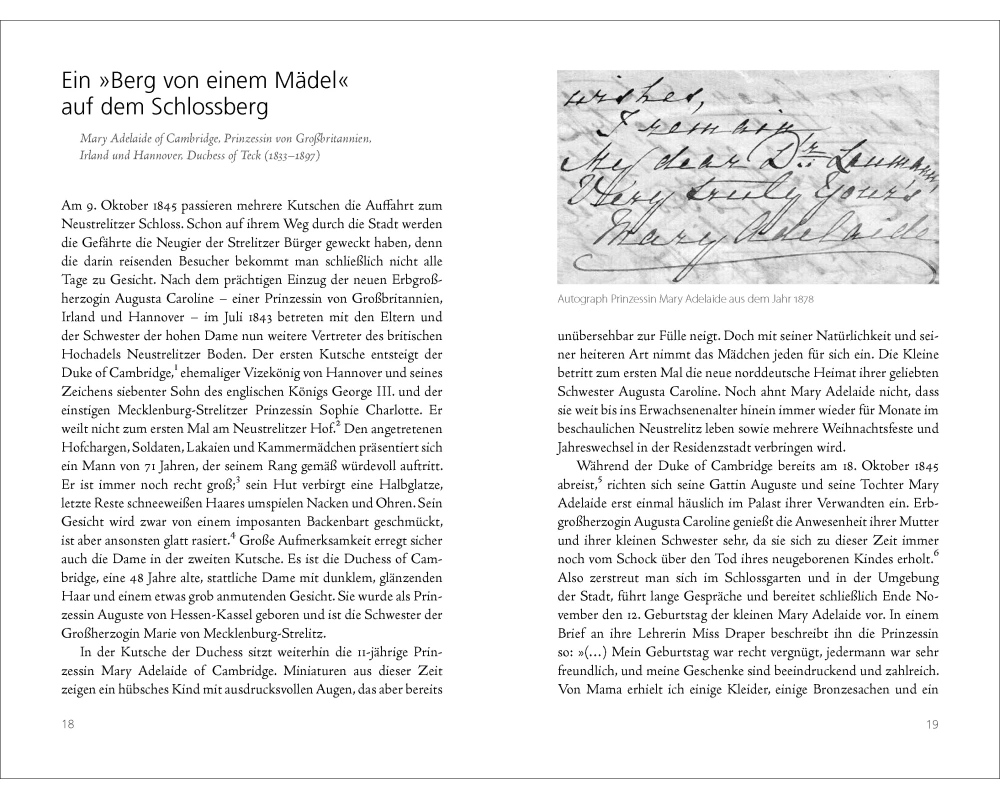 Ein »Berg von einem Mädel«
auf dem Schlossberg
Mary Adelaide of Cambridge, Prinzessin von Großbritannien,
Irland und Hannover, Duchess of Teck (1833–1897)
Am 9. Oktober 1845 passieren mehrere Kutschen die Auffahrt zum
Neustrelitzer Schloss. Schon auf ihrem Weg durch die Stadt werden
die Gefährte die Neugier der Strelitzer Bürger geweckt haben, denn
die darin reisenden Besucher bekommt man schließlich nicht alle
Tage zu Gesicht. Nach dem prächtigen Einzug der neuen Erbgroß-
herzogin Augusta Caroline – einer Prinzessin von Großbritannien,
Irland und Hannover – im Juli 1843 betreten mit den Eltern und
der Schwester der hohen Dame nun weitere Vertreter des britischen
Hochadels Neustrelitzer Boden. Der ersten Kutsche entsteigt der
Duke of Cambridge,¹ ehemaliger Vizekönig von Hannover und seines
Zeichens siebenter Sohn des englischen Königs George III. und der
einstigen Mecklenburg-Strelitzer Prinzessin Sophie Charlotte. Er
weilt nicht zum ersten Mal am Neustrelitzer Hof.² Den angetretenen
Hofchargen, Soldaten, Lakaien und Kammermädchen präsentiert sich
ein Mann von 71 Jahren, der seinem Rang gemäß würdevoll auftritt.
Er ist immer noch recht groß;³ sein Hut verbirgt eine Halbglatze,
letzte Reste schneeweißen Haares umspielen Nacken und Ohren. Sein
Gesicht wird zwar von einem imposanten Backenbart geschmückt,
ist aber ansonsten glatt rasiert.⁴ Große Aufmerksamkeit erregt sicher
auch die Dame in der zweiten Kutsche. Es ist die Duchess of Cam-
bridge, eine 48 Jahre alte, stattliche Dame mit dunklem, glänzenden
Haar und einem etwas grob anmutenden Gesicht. Sie wurde als Prin-
zessin Auguste von Hessen-Kassel geboren und ist die Schwester der
Großherzogin Marie von Mecklenburg-Strelitz.
In der Kutsche der Duchess sitzt weiterhin die 11-jährige Prin-
zessin Mary Adelaide of Cambridge. Miniaturen aus dieser Zeit
zeigen ein hübsches Kind mit ausdrucksvollen Augen, das aber bereits
18
wishes,
I remain,
My dear Dr. Laumann,
Very truly Yours
Mary Adelaide
Autograph Prinzessin Mary Adelaide aus dem Jahr 1878
unübersehbar zur Fülle neigt. Doch mit seiner Natürlichkeit und sei-
ner heiteren Art nimmt das Mädchen jeden für sich ein. Die Kleine
betritt zum ersten Mal die neue norddeutsche Heimat ihrer geliebten
Schwester Augusta Caroline. Noch ahnt Mary Adelaide nicht, dass
sie weit bis ins Erwachsenenalter hinein immer wieder für Monate im
beschaulichen Neustrelitz leben sowie mehrere Weihnachtsfeste und
Jahreswechsel in der Residenzstadt verbringen wird.
Während der Duke of Cambridge bereits am 18. Oktober 1845
abreist,⁵ richten sich seine Gattin Auguste und seine Tochter Mary
Adelaide erst einmal häuslich im Palast ihrer Verwandten ein. Erb-
großherzogin Augusta Caroline genießt die Anwesenheit ihrer Mutter
und ihrer kleinen Schwester sehr, da sie sich zu dieser Zeit immer
noch vom Schock über den Tod ihres neugeborenen Kindes erholt.⁶
Also zerstreut man sich im Schlossgarten und in der Umgebung
der Stadt, führt lange Gespräche und bereitet schließlich Ende No-
vember den 12. Geburtstag der kleinen Mary Adelaide vor. In einem
Brief an ihre Lehrerin Miss Draper beschreibt ihn die Prinzessin
so: »(…) Mein Geburtstag war recht vergnügt, jedermann war sehr
freundlich, und meine Geschenke sind beeindruckend und zahlreich.
Von Mama erhielt ich einige Kleider, einige Bronzesachen und ein
19